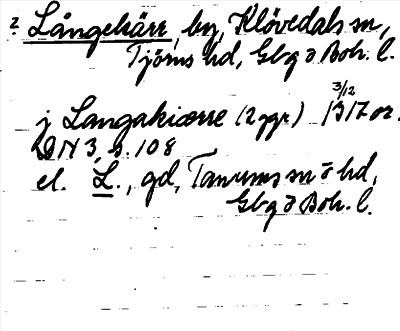 ? Långekärr, by, Klövedals sn,
Tjörns hd, Gbg o Boh. l.
3/12
j Langakiærre (2 ggr) 1317 or.
DN 3, s. 108
el. L., gd, Tanums sn o hd,
Gbg o Boh. l.